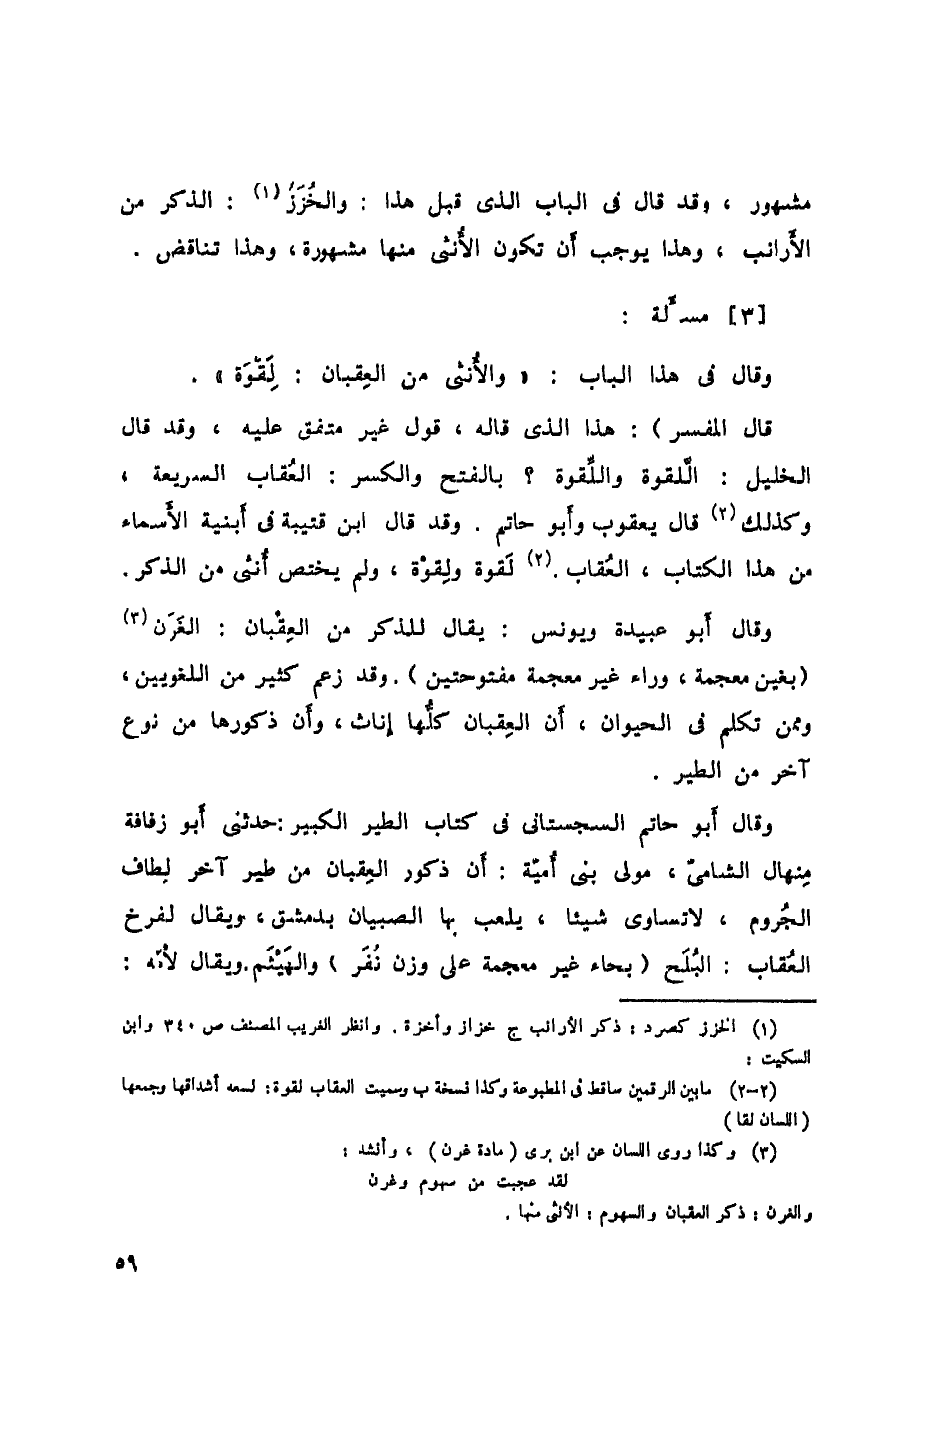 مشهور ، وقد قال فى الباب الذى قبل هذا : والخُزَزُ (١) : الذكر من
الأَرانب ، وهذا يوجب أَن تكون الأُنثى منها مشهورة ، وهذا تناقض .
[٣] مسأَلة :
وقال فى هذا الباب : « والأُنثى من العِقبان : لِقَْوَة » .
قال المفسر ) : هذا الذى قاله ، قول غير متفق عليه ، وقد قال
الخليل : اللَّقوة واللِّقوة ؟ بالفتح والكسر : العُقاب السريعة ،
وكذلك (٢) قال يعقوب وأَبو حاتم . وقد قال ابن قتيبة فى أَبنية الأَسماء
من هذا الكتاب ، العُقاب .(٢) لَقوة ولِقوْة ، ولم يختص أُنثى من الذكر .
وقال أَبو عبيدة ويونس : يقال للذكر من العِقْبان : الغَرَن (٣)
(بغين معجمة ، وراء غير معجمة مفتوحتين ) . وقد زعم كثير من اللغويين ،
وممن تكلم فى الحيوان ، أَن العِقبان كلُّها إناث ، وأَن ذكورها من نوع
آخر من الطير .
وقال أَبو حاتم السجستانى فى كتاب الطير الكبير : حدثنى أَبو زفافة
مِنهال الشامىّ ، مولى بنى أُميّة : أَن ذكور العِقبان من طير آخر لِطاف
الجُروم ، لاتساوى شيئا ، يلعب بها الصبيان بدمشق ، ويقال لفرخ
العُقاب : البُلَح ( بحاء غير معجمة على وزن نُفَر ) والهَيْثَم . ويقال لأَنّه :
(١) الخزز كصرد : ذكر الأرانب ج خزاز وأخزة . وانظر الغريب المصنف ص ٣٤٠ وابن
السكيت :
(٢-٢) مابين الرقمين ساقط فى المطبوعة وكذا نسخة ب وسميت العقاب لقوة : لسعه أشداقها وجمعها
( اللسان لقا )
(٣) وكذا روى اللسان عن ابن برى ( مادة غرن ) ، وأنشد :
لقد عجبت من سهوم وغرن
والغرن : ذكر العقبان والسهوم : الأنثى منها .
٥٩